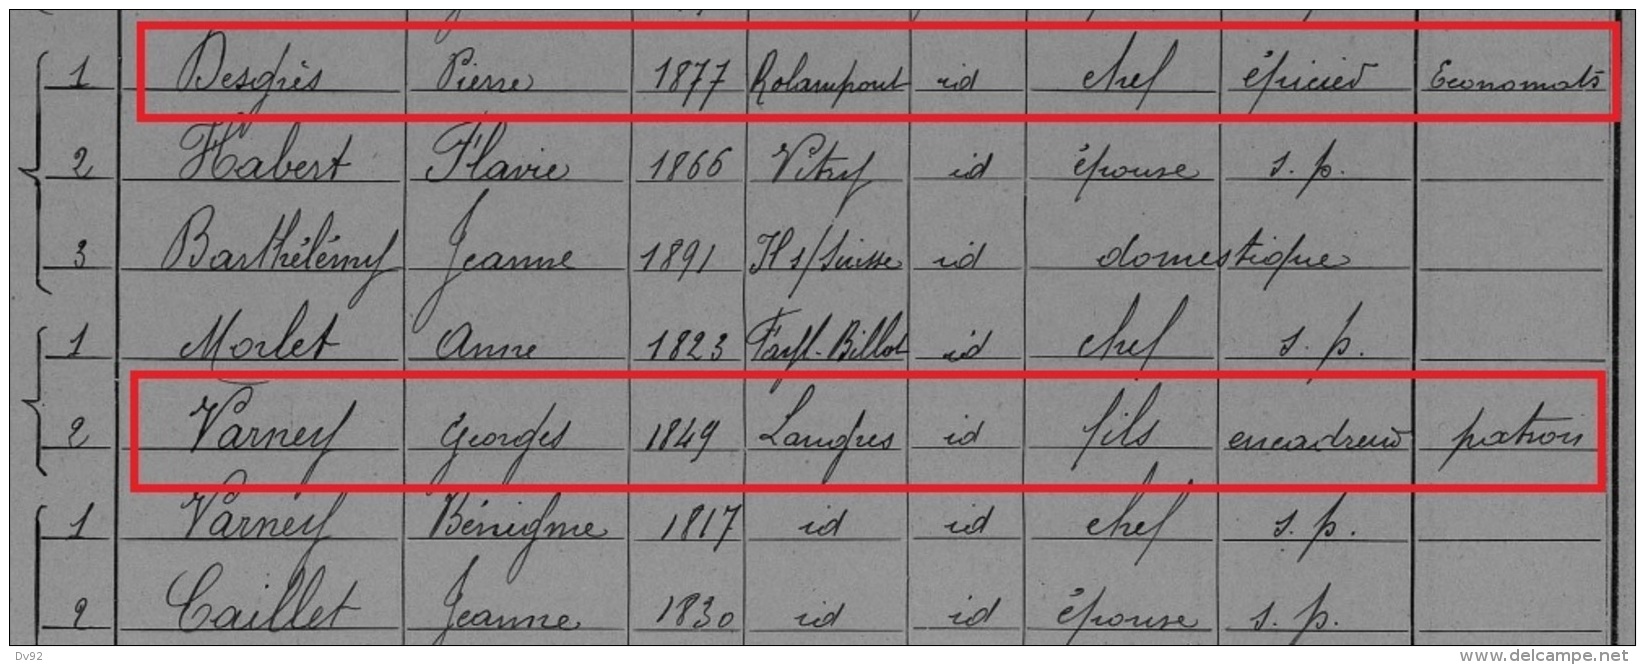 1 Desgrès Pierre 1877 Rolampont id chef épicier Economats
2 Habert Flavie 1866 Vitry id épouse s. p.
3 Barthélémy Jeanne 1891 id domestique
1 Morlet Anne 1823 Fayl-Billot id chef s. p.
2 Varney Georges 1849 Langres id fils encadreur patron
1 Varney Bénigme 1817 id id chef s. p.
2 Caillet Jeanne 1830 id id épouse s. p.
Dv92
www.delcampe.net